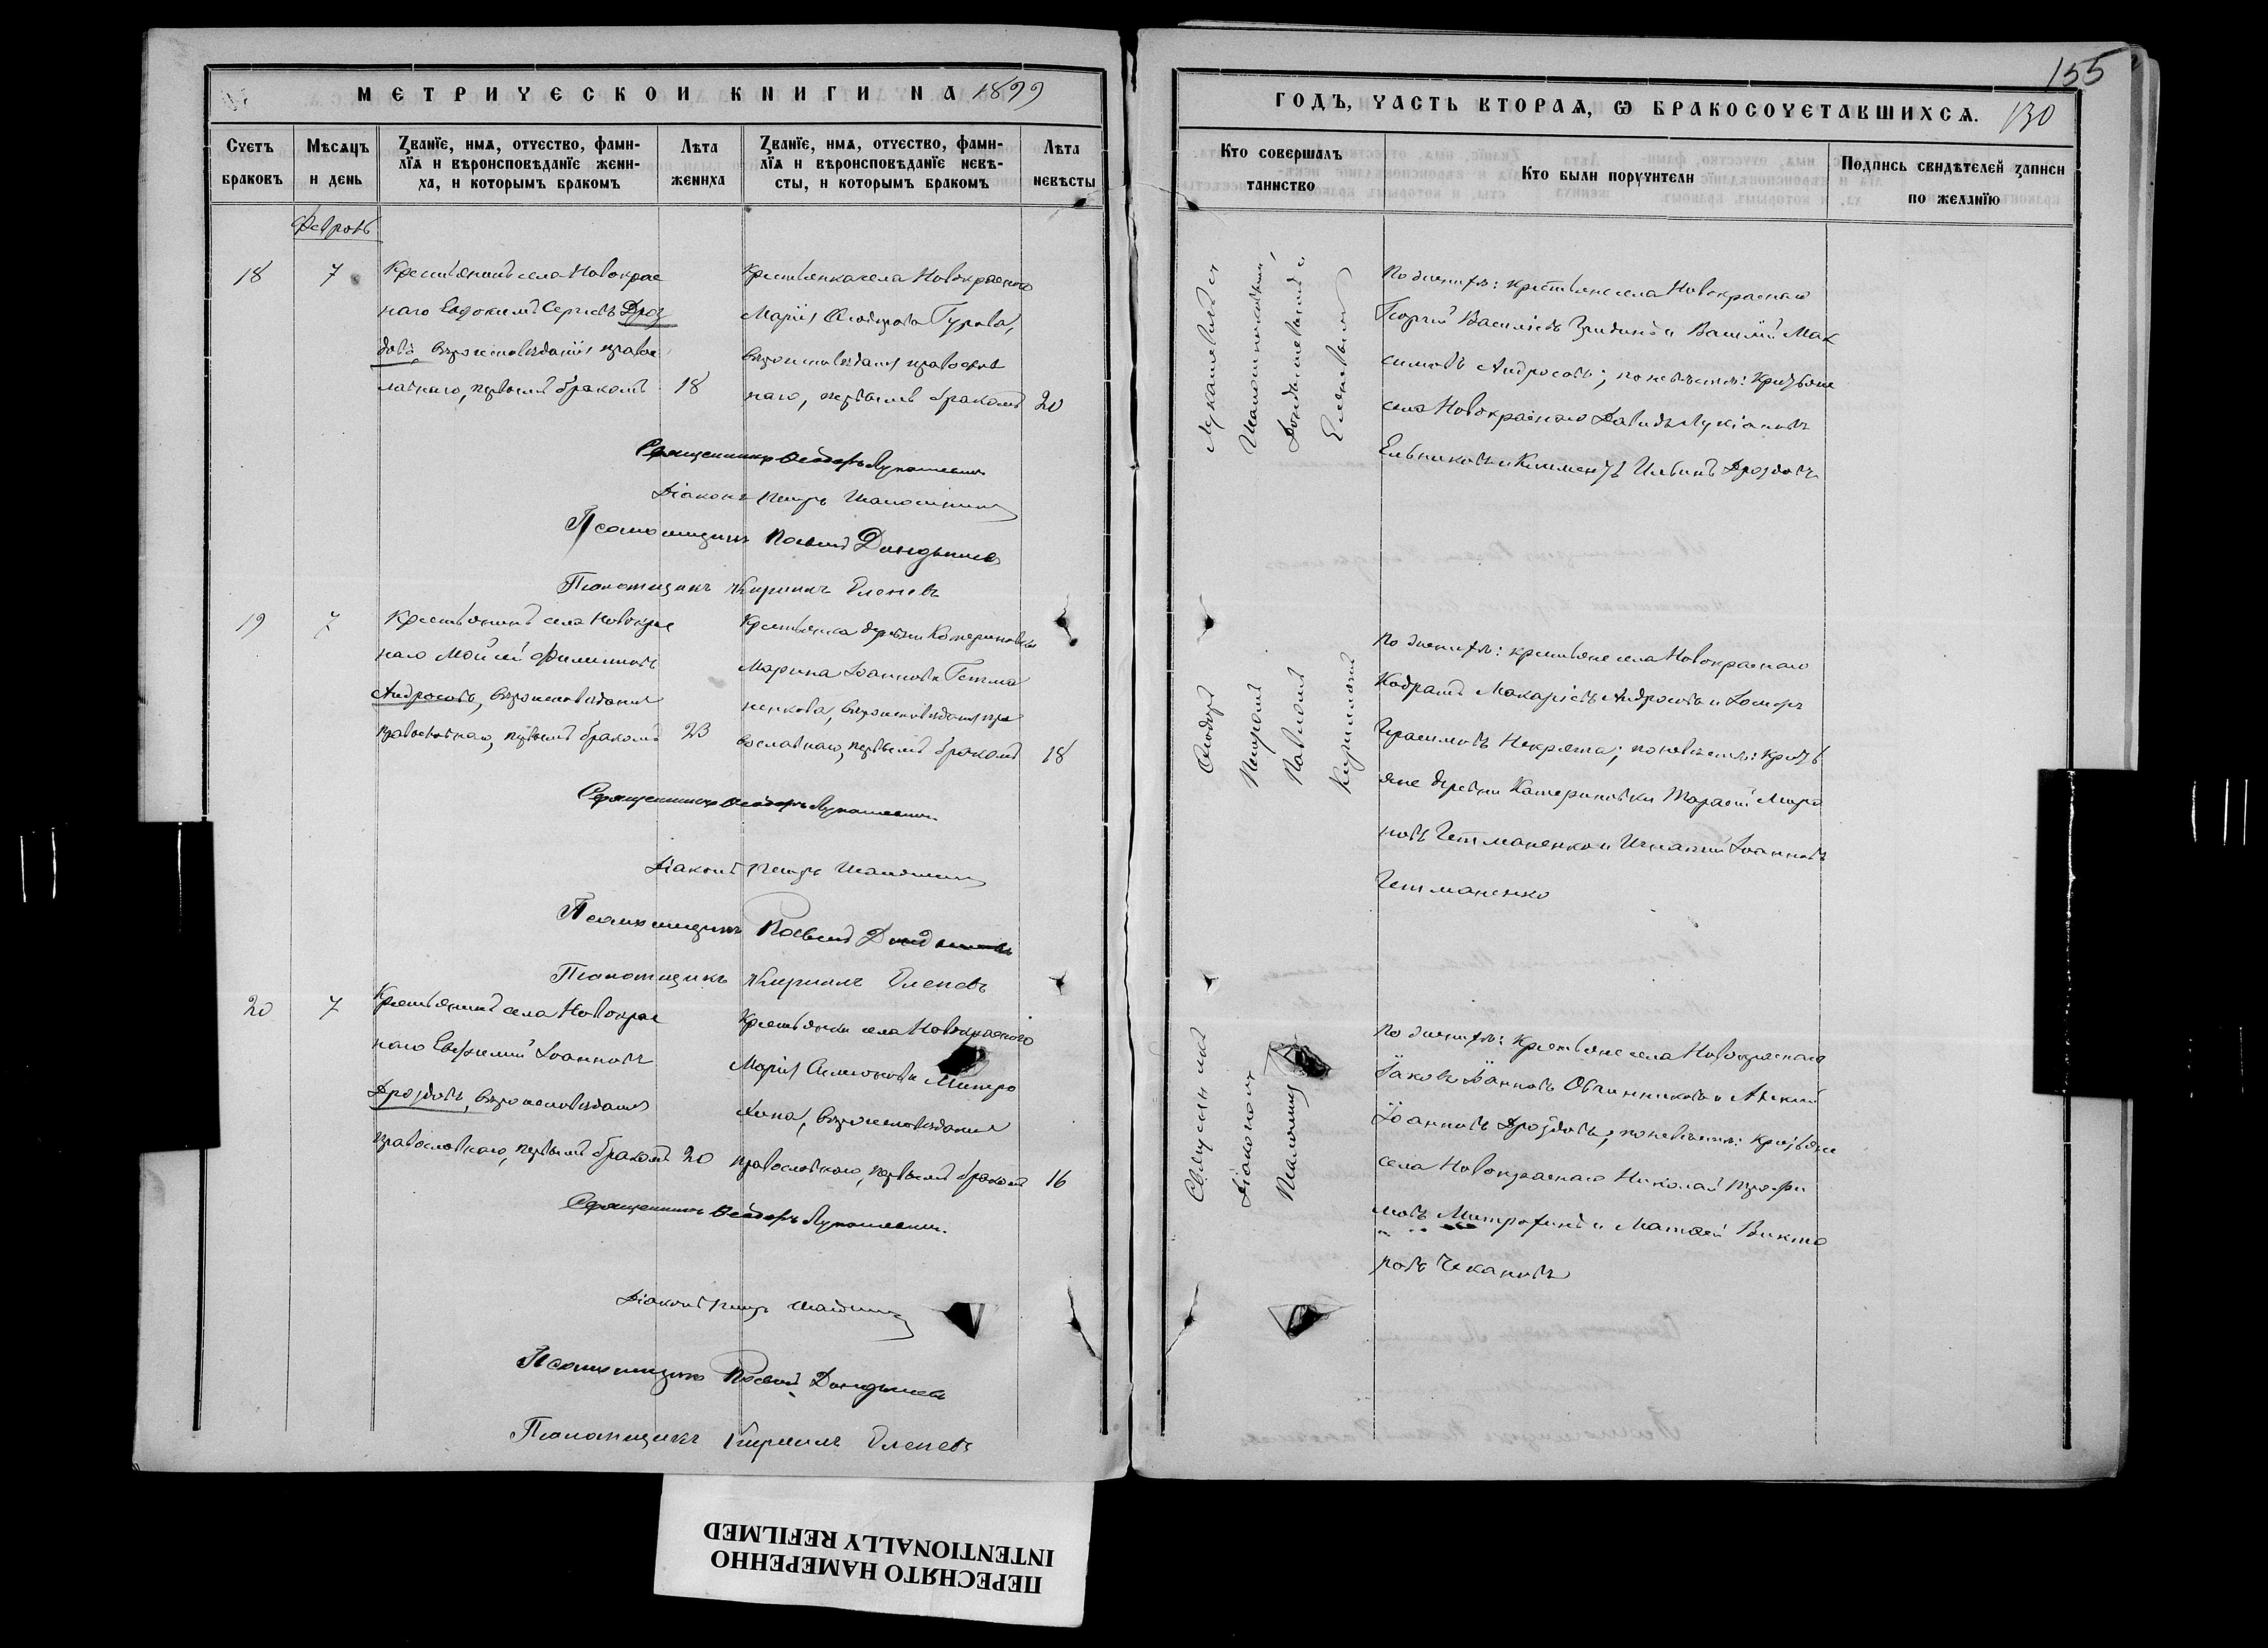 МЕТРИЧЕСКОЙ КНИГИ НА 1899
Счетъ браковъ
Мѣсяцъ и день
Званїе, имя, отчество, фами-
лїя и вѣроисповѣданїе жени-
ха, и которымъ бракомъ
Лѣта жениха
Званїе, имя, отчество, фами-
лїя и вѣроисповѣданїе невѣ-
сты, и которымъ бракомъ
Лѣта невѣсты
18
7
Крестьянинъ села Новокрас
наго Евдокимъ Сергѣевъ Дроз
довъ, вѣроисповѣданія правос
лавнаго, первымъ бракомъ
18
Крестьянка села Новокраснаго
Марія Ѳеодорова Гурова,
вѣроисповѣданія православ
наго, первымъ бракомъ
20
Священникъ Ѳеодоръ Лукашевичъ
Діаконъ Петръ
Псаломщикъ Павелъ
Псаломщикъ Кириллъ Еленевъ
19
7
Крестьянинъ села Новокрас
наго Мойсей Филиповъ
Андросовъ, вѣроисповѣданія
православнаго, первымъ бракомъ
23
Крестьянка деревни Катериновки
Марина Іоаннова Гетма
ненкова, вѣроисповѣданія пра
вославнаго, первымъ бракомъ
18
Священникъ Ѳеодоръ Лукашевичъ
Діаконъ Петръ
Псаломщикъ Павелъ
Псаломщикъ Кириллъ Еленевъ
20
7
Крестьянинъ села Новокрас
наго Евфимій Іоанновъ
Дроздовъ, вѣроисповѣданія
православнаго, первымъ бракомъ
20
Крестьянка села Новокраснаго
Марія Симеонова Митро
фана, вѣроисповѣданія
православнаго, первымъ бракомъ
16
Священникъ Ѳеодоръ Лукашевичъ
Діаконъ Петръ
Псаломщикъ Павелъ
Псаломщикъ Кириллъ Еленевъ
155
ГОДЪ, ЧАСТЬ ВТОРАЯ, Ѡ БРАКОСОЧЕТАВШИХСЯ.
130
Кто совершалъ
таинство
Кто были поручители
Подпись свидѣтелей записи
по желанїю
По женихѣ: крестьяне села Новокраснаго
Георгій Василіевъ и Василій Мак
симовъ Андросовъ; по невѣстѣ: крестьяне
села Новокраснаго Давидъ Лукіановъ
Ельниковъ и Климентъ Ильинъ Дроздовъ
Ѳеодоръ
Петромъ
Павломъ
Кирилломъ
По женихѣ: крестьяне села Новокраснаго
Кодратъ Макаріевъ Андросовъ и
Герасимовъ; по невѣстѣ: кресть
яне деревни Катериновки Тарасій Миро
новъ Гетманенко и Игнатій Іоанновъ
Гетманенко
Священникъ
Діакономъ
По женихѣ: крестьяне села Новокраснаго
Іаковъ Іоанновъ Овчинниковъ и
Іоанновъ Дроздовъ; по невѣстѣ: крестьяне
села Новокраснаго Николай Трофи
мовъ Митрофанъ и Матѳей Викто
ровъ Чекановъ
ПЕРЕСНЯТО НАМЕРЕННО
INTENTIONALLY REFILMED